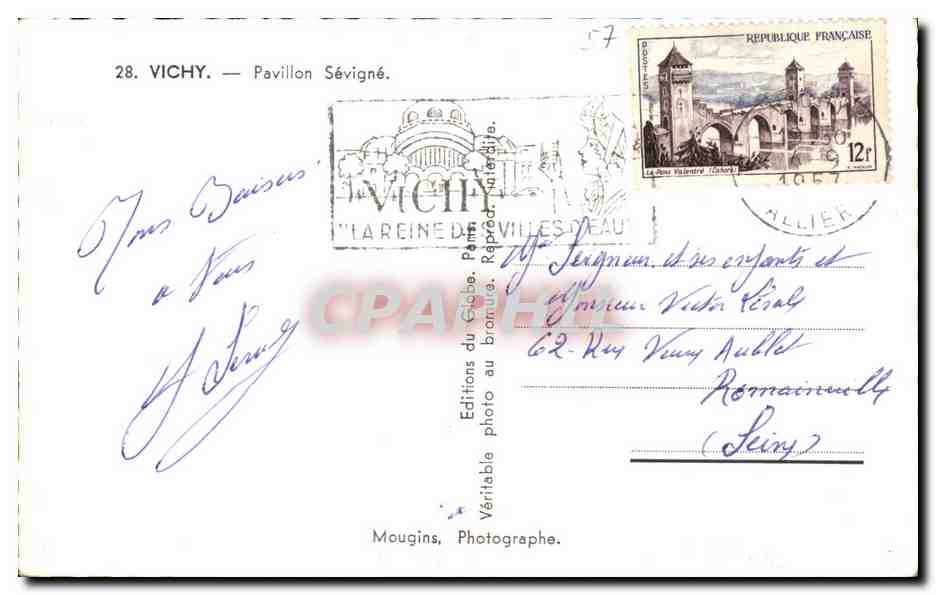 57
28. VICHY. — Pavillon Sévigné.
REPUBLIQUE FRANÇAISE
POSTES
12F
Le Pont Valentré (Cahors)
VICHY
"LA REINE DES VILLES D'EAU"
1957
ALLIER
Bons Baisers
a Vous
Editions du Globe. Paris.
Véritable photo au bromure. Reprod. interdite.
CPARHIL
Me Seigneur et ses enfants et
Monsieur Victor
62 - Rue Aublet
Romainville
(Seine)
Mougins, Photographe.